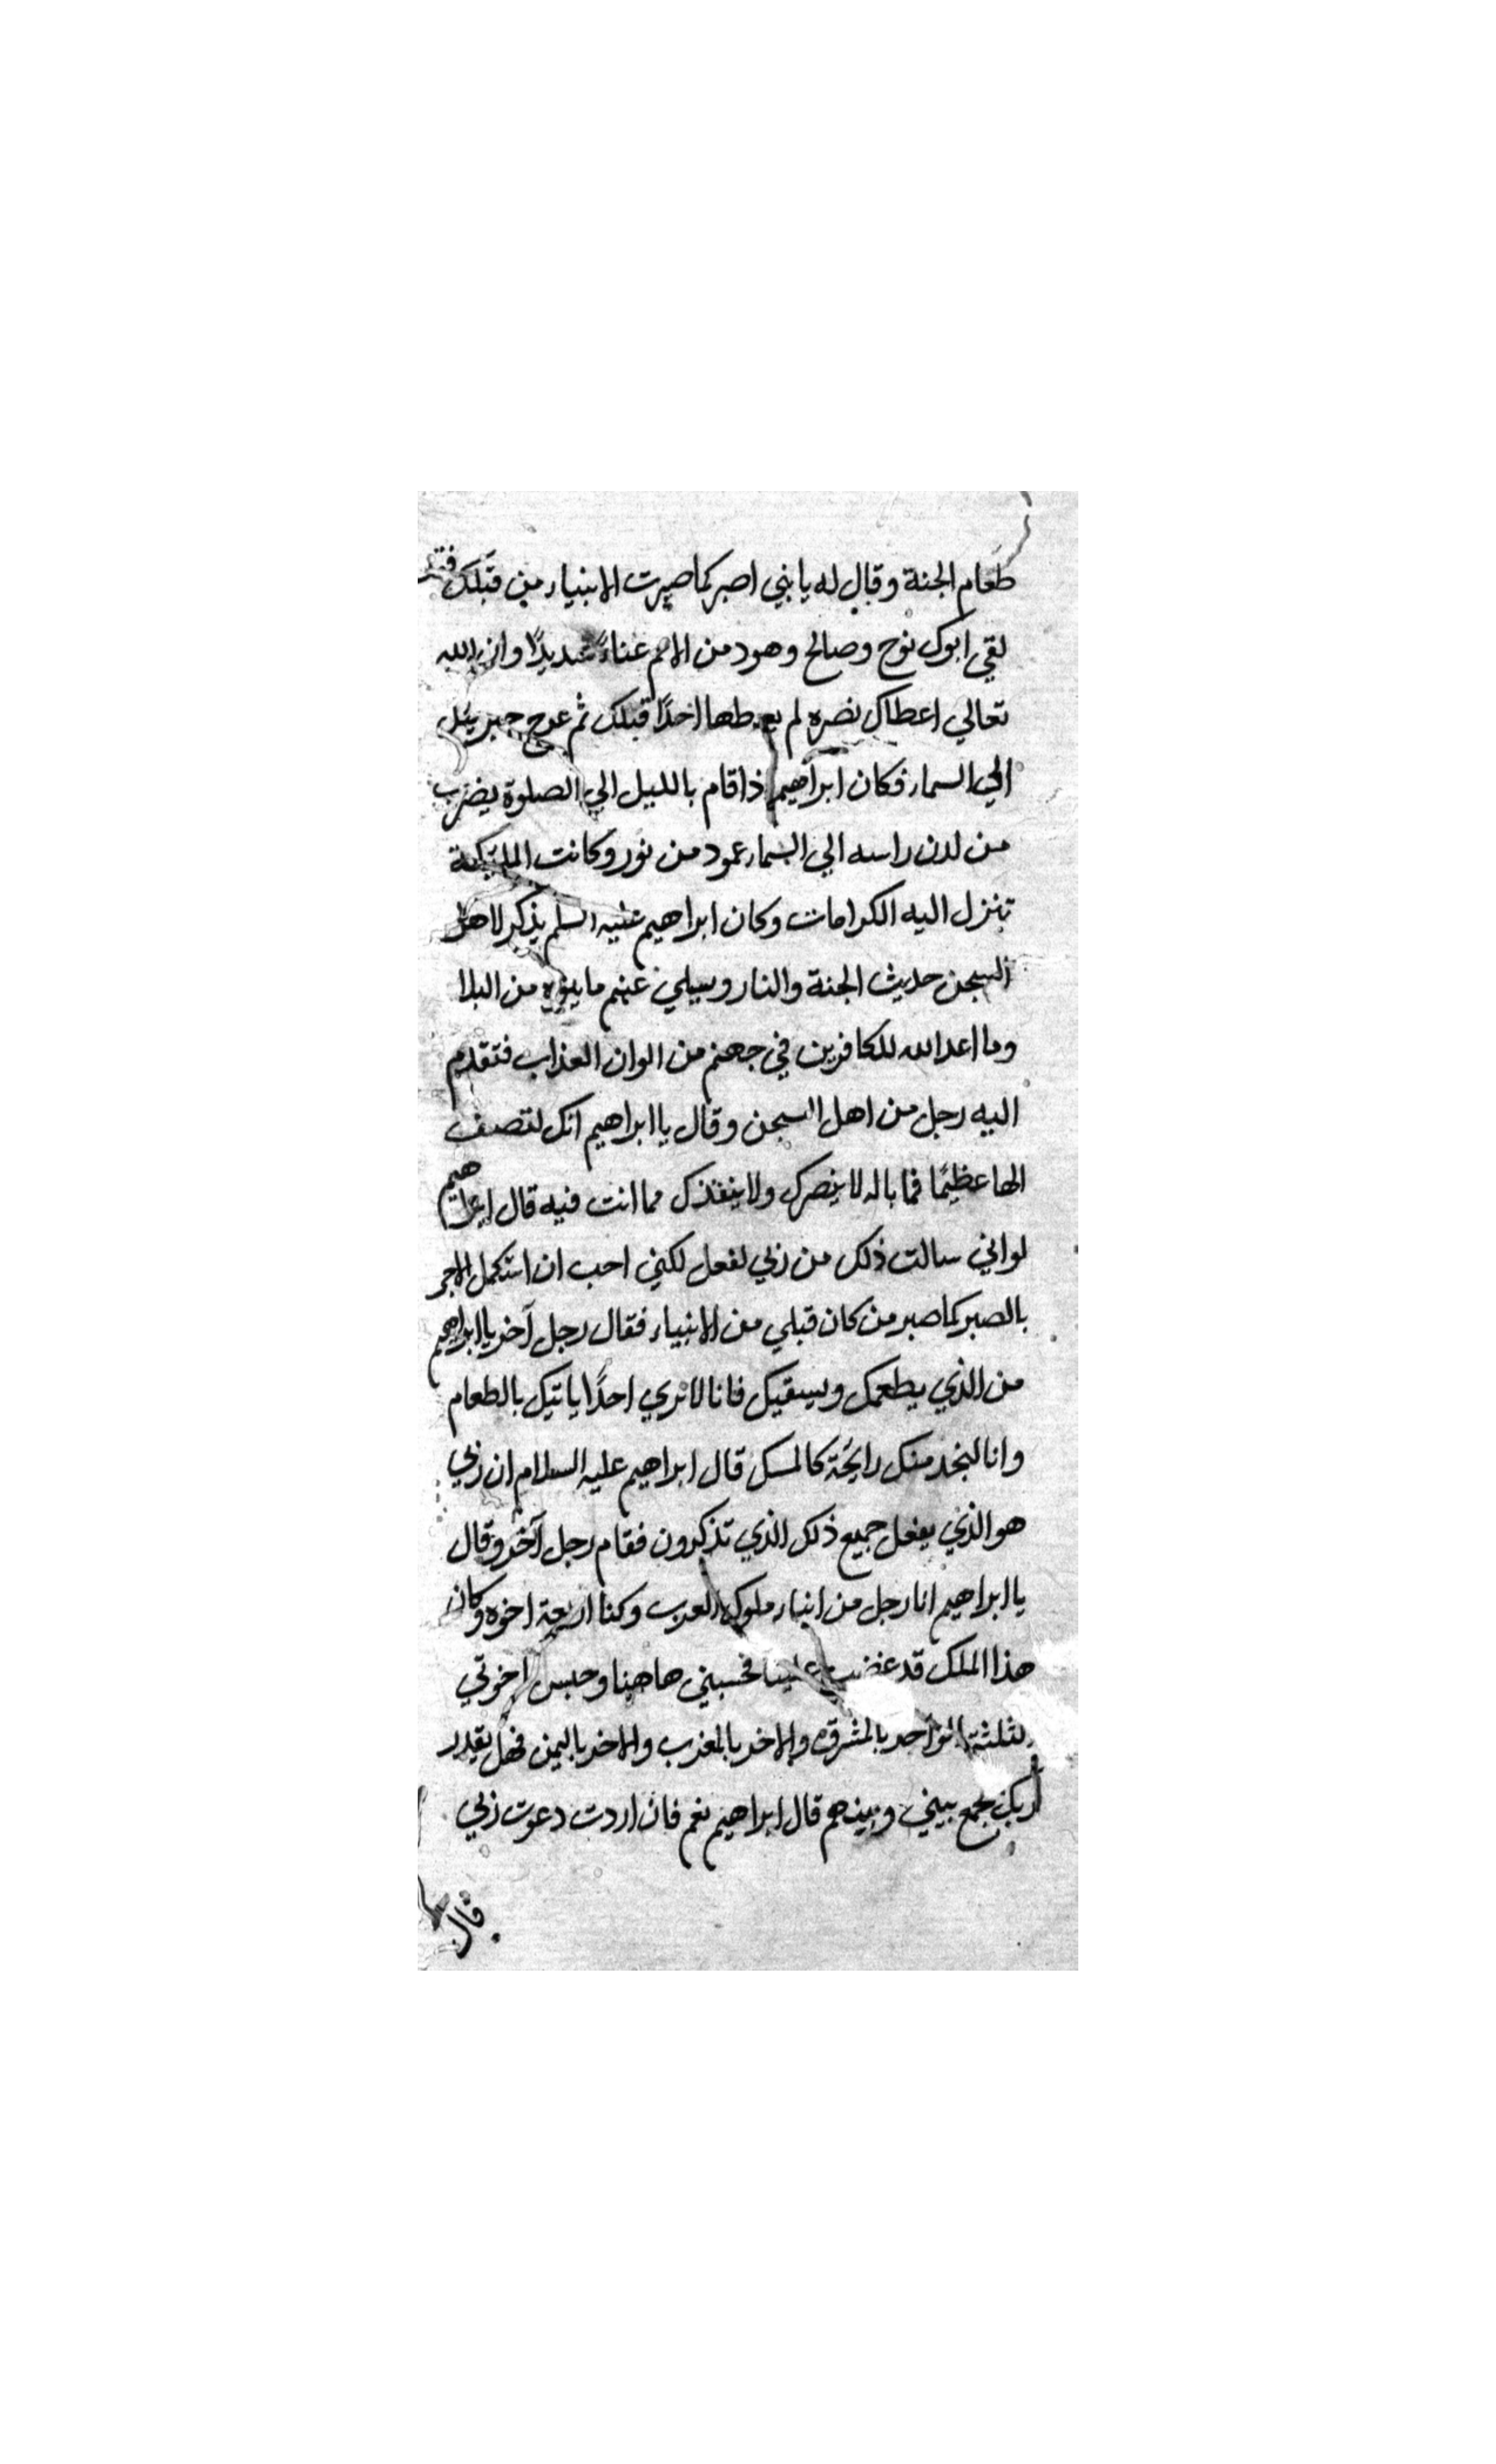 طعام الجنة وقال له يا بني اصبر كما صبرت الانبياء من قبلك فقد
لقي ابوك نوح وصالح وهود من الامم عناءً شديدًا وان الله
تعالي اعطاك نصره لم يعطها احدًا قبلك ثم عرج جبرييل
الي السماء فكان ابراهيم اذا قام بالليل الي الصلوة يضرب
من لدن راسه الي السماء عمود من نور وكانت المليكة
تنزل اليه الكرامات وكان ابراهيم عليه السلم يذكر لاهل
السجن حديث الجنة والنار ويسلي عنهم ما بهم من البلا
وما اعد الله للكافرين في جهنم من الوان العذاب فتقدم
اليه رجل من اهل السجن وقال يا ابراهيم انك لتصف
الها عظيمًا فما باله لا ينصرك ولا ينقذك مما انت فيه قال ابراهيم
لو اني سالت ذلك من ربي لفعل لكني احب ان استكمل الاجر
بالصبر كما صبر من كان قبلي من الانبياء فقال رجل آخر يا ابراهيم
من الذي يطعمك ويسقيك فانا لا نري احدًا ياتيك بالطعام
وانا لنجد منك رايحة كالمسك قال ابراهيم عليه السلام ان ربي
هو الذي يفعل جميع ذلك الذي تذكرون فقام رجل آخر وقال
يا ابراهيم انا رجل من ابناء ملوك العرب وكنا اربعة اخوه وكان
هذا الملك قد غضب علينا فحسبني هاهنا وحبس اخوتي
الثلثة الواحد بالمشرق والاخر بالمغرب والاخر باليمن فهل يقدر
ربك يجمع بيني وبينهم قال ابراهيم نعم فان اردت دعوت ربي
قال